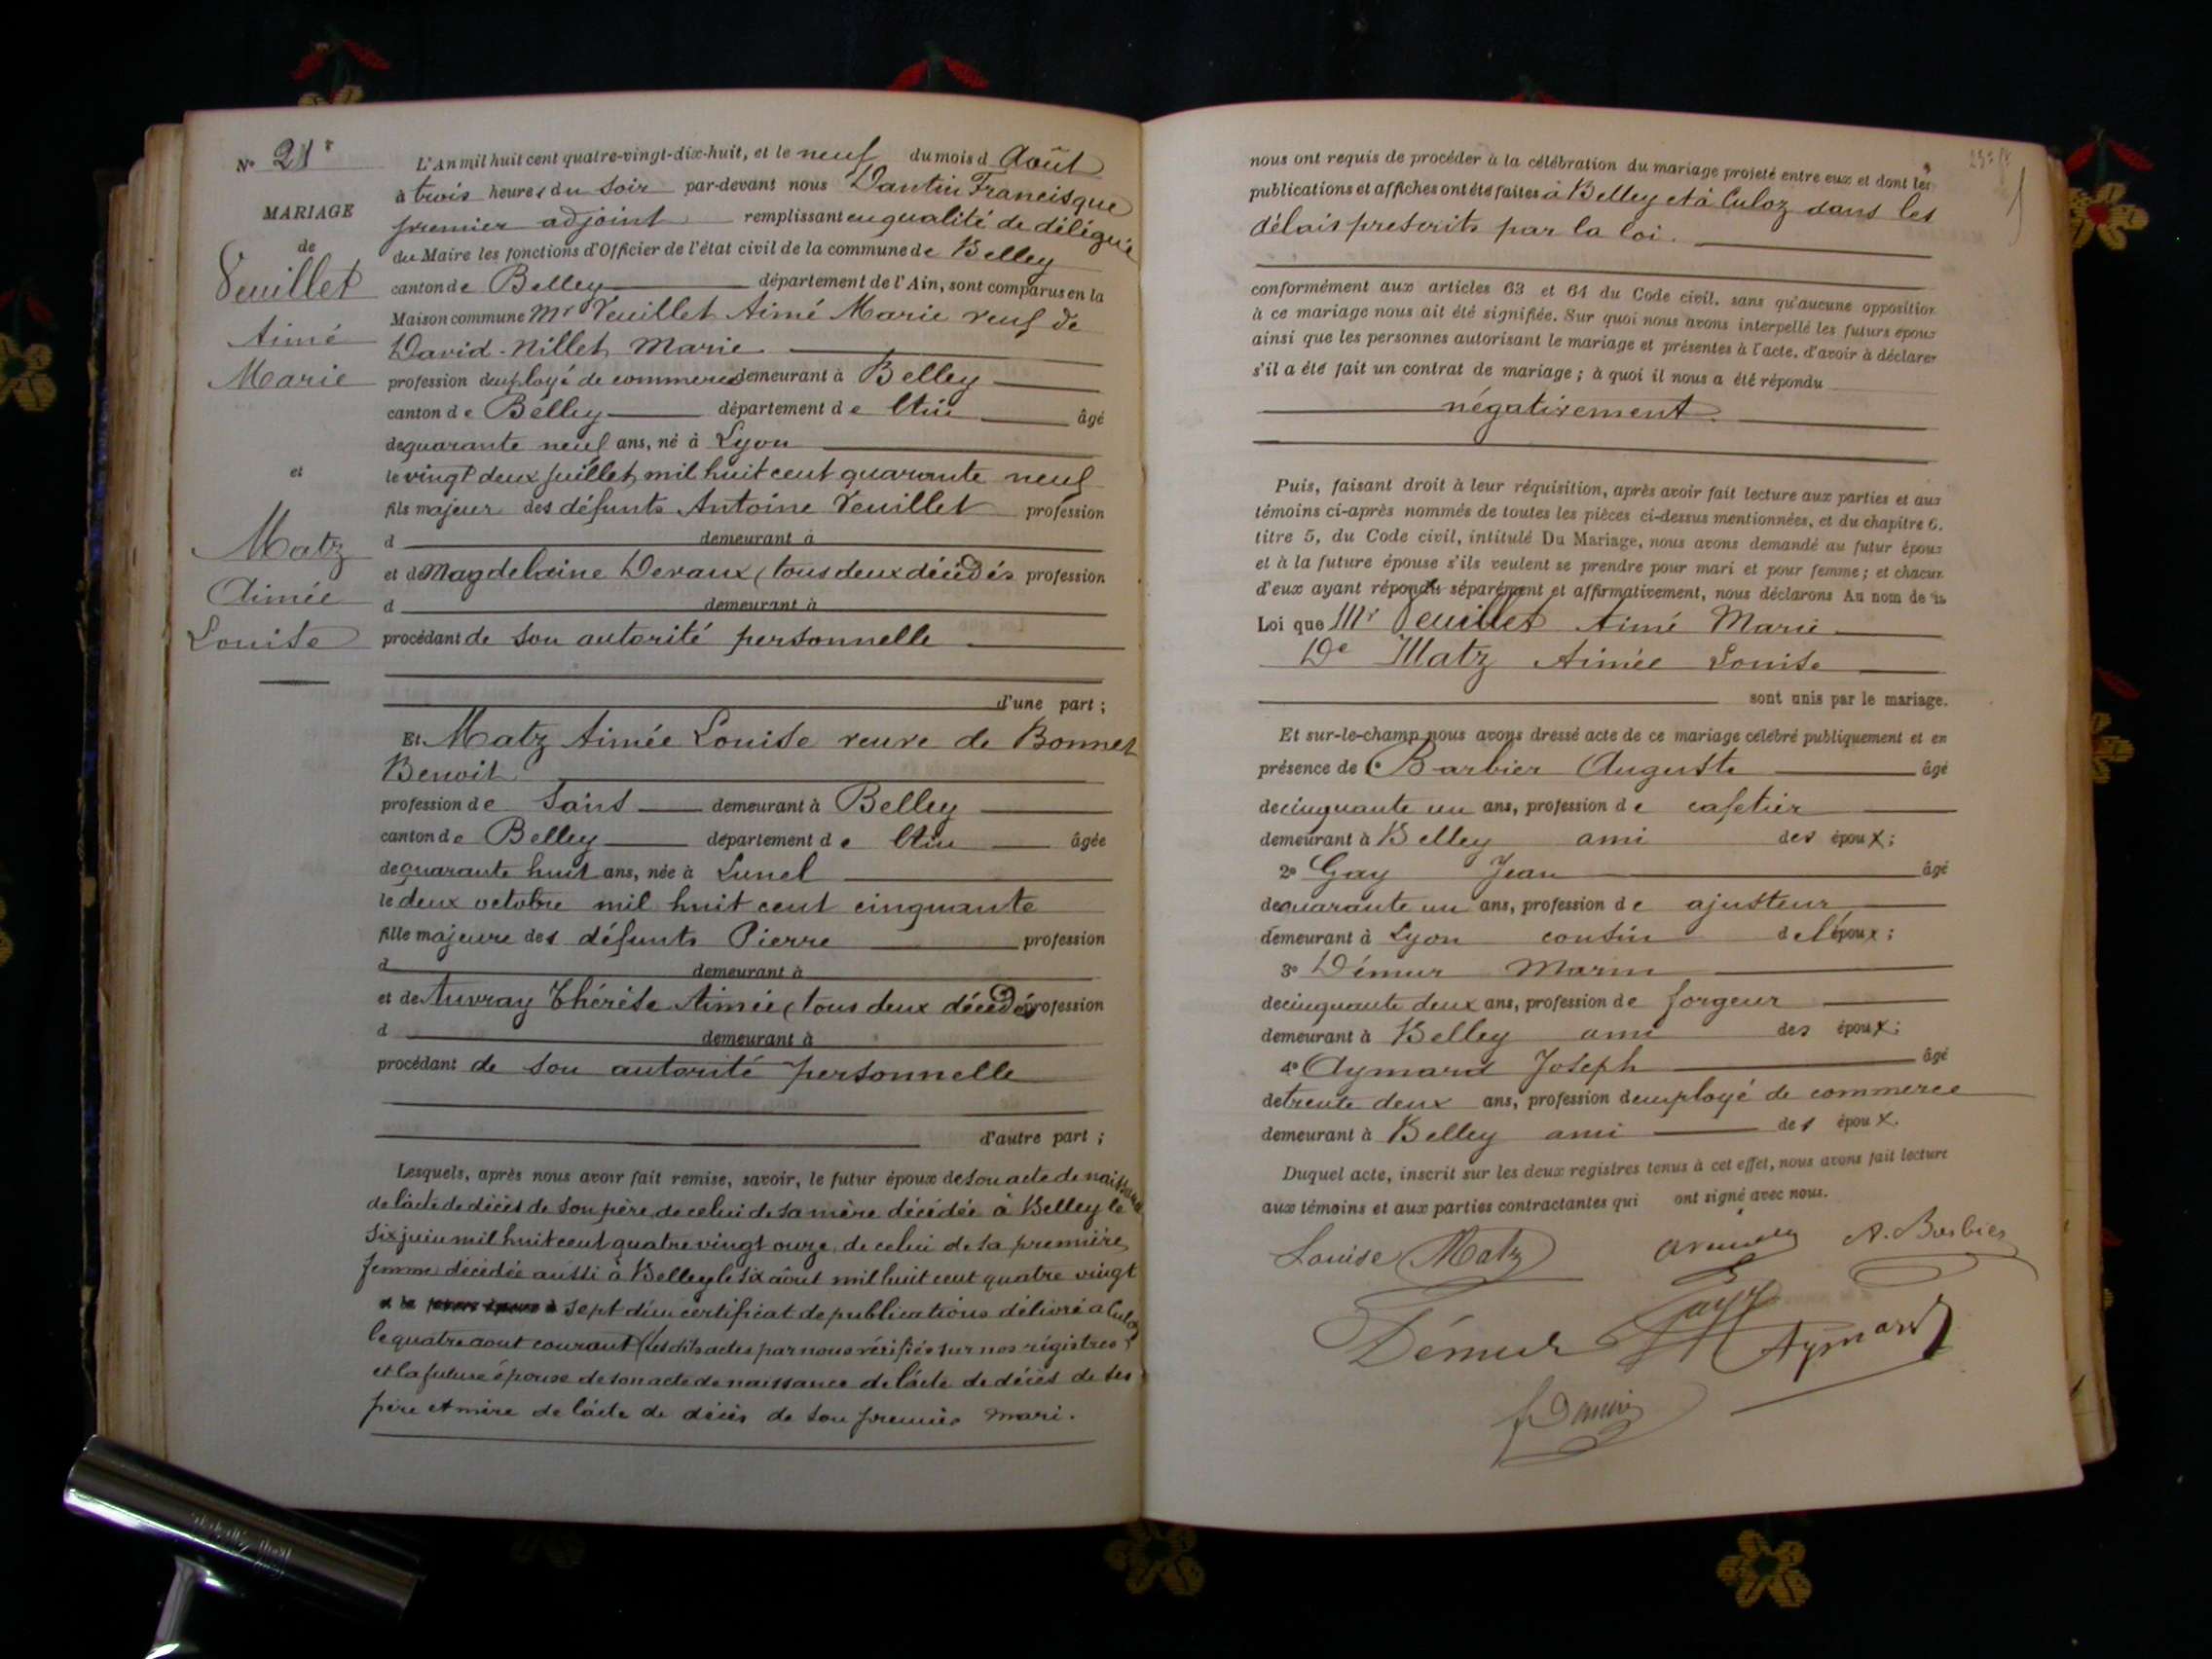 Nº 21
MARIAGE
de
Veuillet
Aimé
Marie
et
Matz
Aimée
Louise
L'An mil huit cent quatre-vingt-dix-huit, et le neuf du mois d Août
à trois heures du soir par-devant nous Dantin Francisque
premier adjoint remplissant en qualité de délégué
du Maire les fonctions d'Officier de l'état civil de la commune de Belley
canton de Belley département de l'Ain, sont comparus en la
Maison commune Mr Veuillet Aimé Marie veuf de
David-Nillet Marie
profession d'employé de commerce demeurant à Belley
canton de Belley département de l'Ain âgé
de quarante neuf ans, né à Lyon
le vingt deux juillet mil huit cent quarante neuf
fils majeur des défunts Antoine Veuillet profession
d demeurant à
et de Magdelaine Devaux (tous deux décédés profession
d demeurant à
procédant de son autorité personnelle
d'une part ;
Et Matz Aimée Louise veuve de Bonnet
Benoit
profession de sans demeurant à Belley
canton de Belley département de l'Ain âgée
de quarante huit ans, née à Lunel
le deux octobre mil huit cent cinquante
fille majeure des défunts Pierre profession
d demeurant à
et de Auvray Thérèse Aimée (tous deux décédés profession
d demeurant à
procédant de son autorité personnelle
d'autre part ;
Lesquels, après nous avoir fait remise, savoir, le futur époux de son acte de naissance
de l'acte de décès de son père, de celui de sa mère décédée à Belley le
six juin mil huit cent quatre vingt onze, de celui de sa première
femme décédée aussi à Belley le six août mil huit cent quatre vingt
sept d'un certificat de publications délivré a Culoz
le quatre aout courant (lesdits actes par nous vérifiés sur nos régistres)
et la future épouse de son acte de naissance de l'acte de décès de ses
père et mère de l'acte de décès de son premier mari.
nous ont requis de procéder à la célébration du mariage projeté entre eux et dont les
publications et affiches ont été faites à Belley et à Culoz dans les
délais prescrits par la loi.
conformément aux articles 63 et 64 du Code civil, sans qu'aucune opposition
à ce mariage nous ait été signifiée. Sur quoi nous avons interpellé les futurs époux
ainsi que les personnes autorisant le mariage et présentes à l'acte, d'avoir à déclarer
s'il a été fait un contrat de mariage ; à quoi il nous a été répondu
négativement.
Puis, faisant droit à leur réquisition, après avoir fait lecture aux parties et aux
témoins ci-après nommés de toutes les pièces ci-dessus mentionnées, et du chapitre 6,
titre 5, du Code civil, intitulé Du Mariage, nous avons demandé au futur époux
et à la future épouse s'ils veulent se prendre pour mari et pour femme ; et chacun
d'eux ayant répondu séparément et affirmativement, nous déclarons Au nom de la
Loi que Mr Veuillet Aimé Marie
De Matz Aimée Louise
sont unis par le mariage.
Et sur-le-champ nous avons dressé acte de ce mariage célébré publiquement et en
présence de 1º Barbier Auguste âgé
de cinquante un ans, profession de cafetier
demeurant à Belley ami des époux ;
2º Gay Jean âgé
de quarante un ans, profession de ajusteur
demeurant à Lyon cousin de l'époux ;
3º Démur Marin
de cinquante deux ans, profession de forgeur
demeurant à Belley ami des époux ;
4º Aymard Joseph âgé
de trente deux ans, profession d'employé de commerce
demeurant à Belley ami des époux.
Duquel acte, inscrit sur les deux registres tenus à cet effet, nous avons fait lecture
aux témoins et aux parties contractantes qui ont signé avec nous.
Louise Matz A. Barbier
Démur Gay Aymard
Dantin